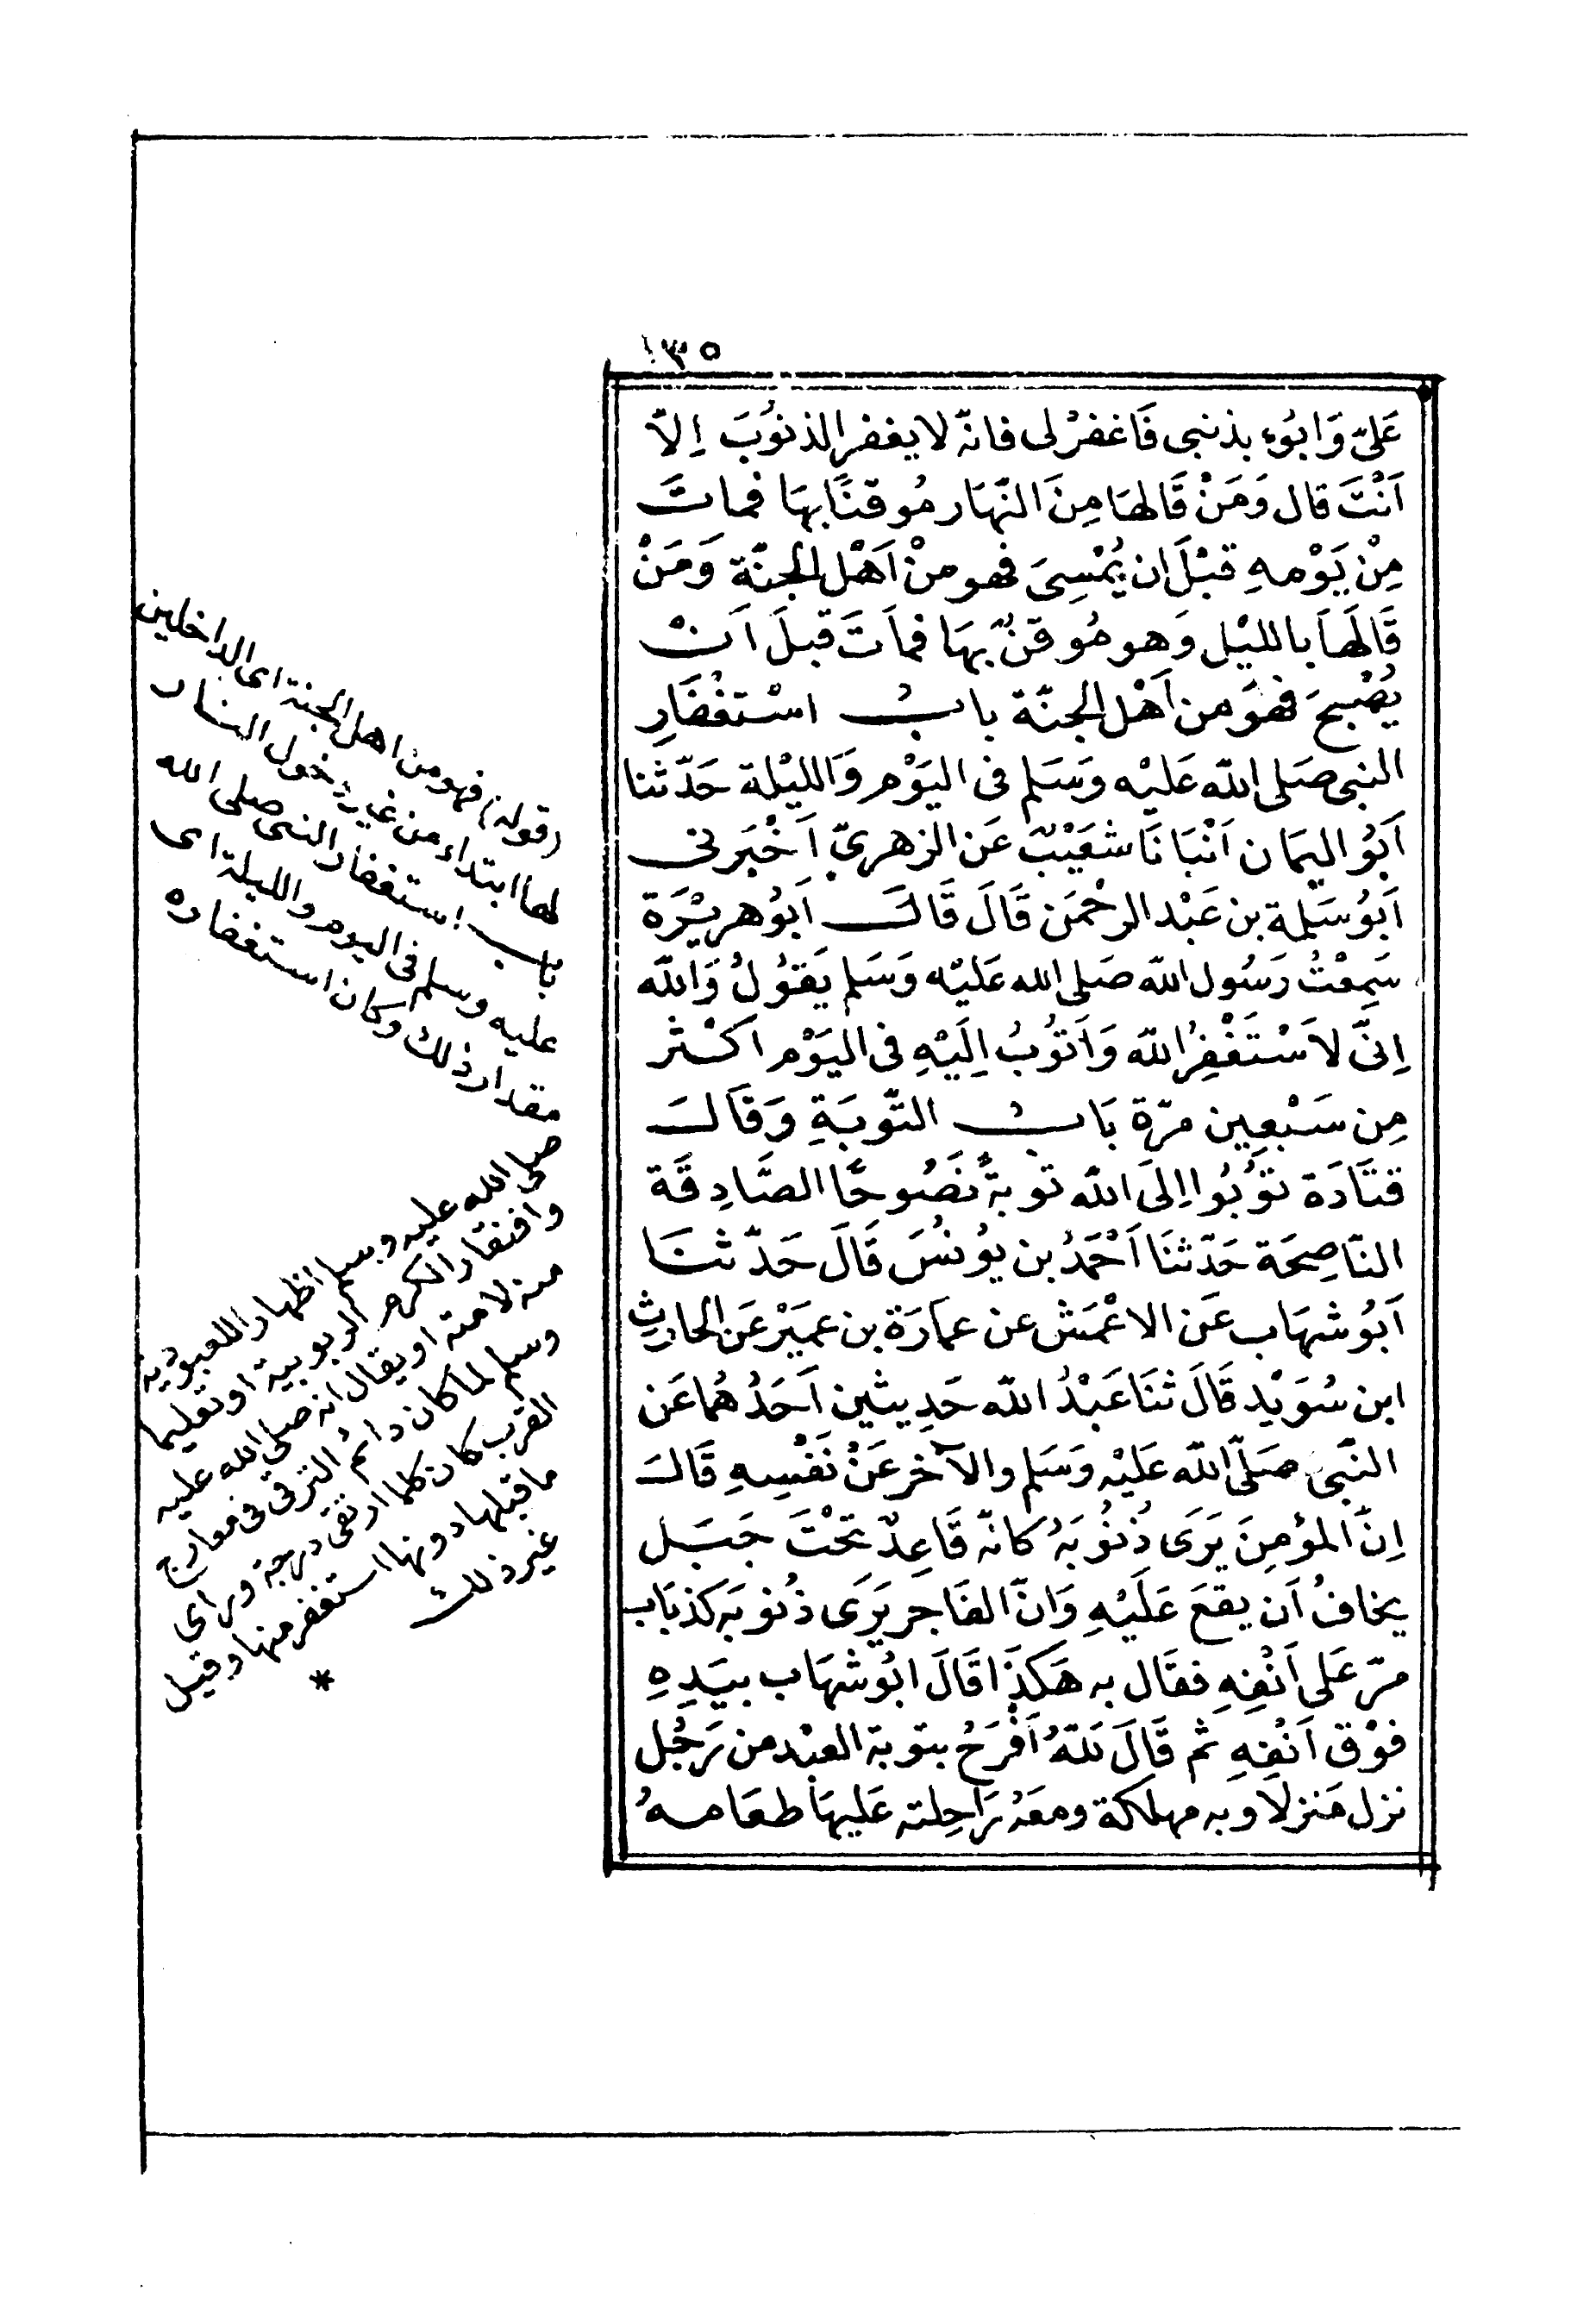 ١٣٥
عَلَىّ وَابُوء بذنبى فَاغفرْ لى فانّه لا يغفر الذنُوبَ اِلاّ
اَنْتَ قال وَمَنْ قَالهَا مِنَ النّهَار مُوقنًا بهَا فماتَ
مِنْ يَوْمهِ قبْلَ ان يُمْسِىَ فهو منْ اَهْل الجنّة وَمَنْ
قَالهَا بالليْل وَهو مُوقنٌ بهَا فماتَ قبلَ انْ
يُصْبحَ فهوَ من اَهْل الجنّة بابُ اسْتغْفَارِ
النبى صَلى اللّه عَليْه وَسَلم فى اليَوْم وَالليْلة حَدّثنا
اَبُو اليمَان اَنْبَانَا شعَيْبٌ عَن الزهرىّ اَخْبَرنى
اَبُو سَلمة بن عَبْد الرحْمَن قَالَ قَالَ اَبُو هريْرَة
سَمِعْتُ رَسُول اللّه صَلى الله عَليْه وَسَلم يَقوُلُ وَاللّه
اِنّى لاَسْتَغْفِرُ اللّه وَاَتُوبُ اِلَيْهِ فى اليَوْم اكْثر
مِن سَبْعِين مرّة بَابُ التّوبَةِ وَقَالَ
قتَادَة توُبُوا اِلىَ اللّه توبةً نَصُوحًا الصَّادِقَة
النّاصِحَة حَدّثنَا اَحْمَدُ بن يوُنُسَ قَالَ حَدّثنَا
اَبُو شهَاب عَن الاعْمَش عن عمَارَة بن عمَيْر عَن الحَارثِ
ابن سُوَيْد قَالَ ثنَا عَبْدُ اللّه حَدِيثين اَحَدُهُما عَن
النّبى صَلّى اللّه عَليْه وَسَلم والآخر عَنْ نَفْسِهِ قَالَ
اِنّ المؤمِنَ يَرَى ذُنوُبَهُ كانّه قَاعِدٌ تحْتَ جَبَل
يخافُ اَن يقعَ عَلَيْهِ وَانّ الفَاجر يَرَى ذُنوبَه كَذبَاب
مرّ عَلى اَنْفِهِ فقَال به هَكَذَا قَالَ ابُو شهَاب بيَدِهِ
فوْق اَنْفِهِ ثم قَالَ للّهُ اَفْرَحُ بتوبة العبْد من رَجُل
نزل مَنزلا وبه مهلكة ومعَهُ رَاحِلته عَليهَا طعَامهُ
(قوله) فهو من اهل الجنة اى الداخلين
لها ابتداء من غير دخول النار
باب استغفار النبى صلى الله
عليه وسلم فى اليوم والليلة اى
مقدار ذلك وكان استغفاره
صلى الله عليه وسلم اظهارا للعبودية
وافتقار الكرم الربوبية او تعليما
منه لامته او يقال انه صلى الله عليه
وسلم لما كان دائم الترقى فى معارج
القرب كان كلما ارتقى درجة وراى
ما قبلها دونها استغفر منها وقيل
غير ذلك
*